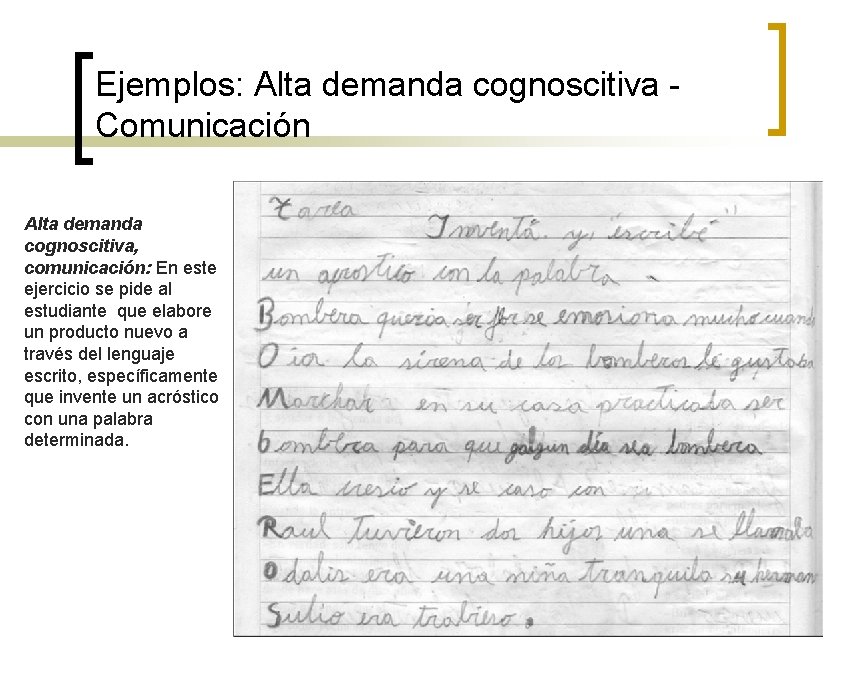 Ejemplos: Alta demanda cognoscitiva -
Comunicación
Alta demanda
cognoscitiva,
comunicación: En este
ejercicio se pide al
estudiante que elabore
un producto nuevo a
través del lenguaje
escrito, específicamente
que invente un acróstico
con una palabra
determinada.
Tarea
Inventá y, "escribe"
un acrostico con la palabra
Bombera queria ser se emosiona mucho cuando
Oia la sirena de los bomberos le gustaba
Marchar en su casa practicaba ser
bombera para que algun día sea bombera
Ella cresio y se caso con
Raul Tuvieron dos hijos una se llamaba
Odalis era una niña tranquila su herman
Sulio era trabieso.